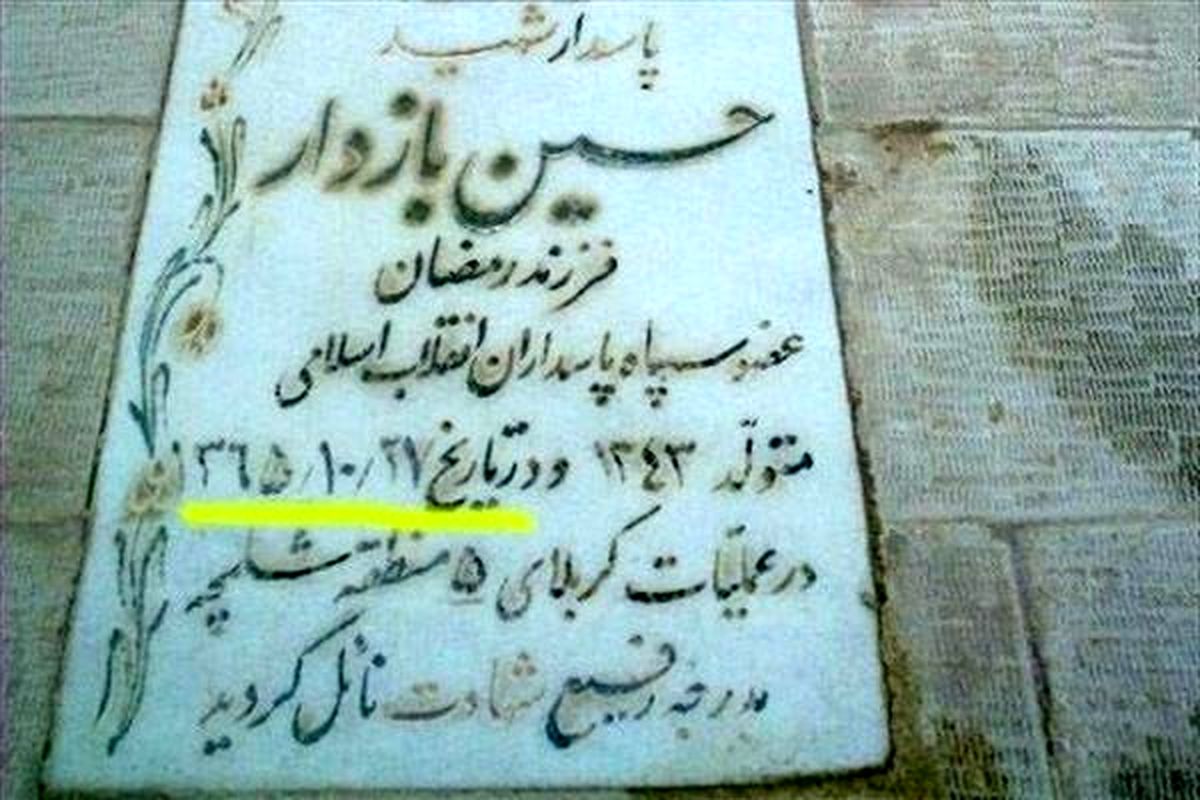 پاسدار شهید
حسین بازدار
فرزند رمضان
عضو سپاه پاسداران انقلاب اسلامی
متولّد ۱۳٤۳ و در تاریخ ۱۳٦۵/۱۰/۲۷
در عملیّات کربلای ۵ منطقه شلمچه
بدرجه رفیع شهادت نائل گردید